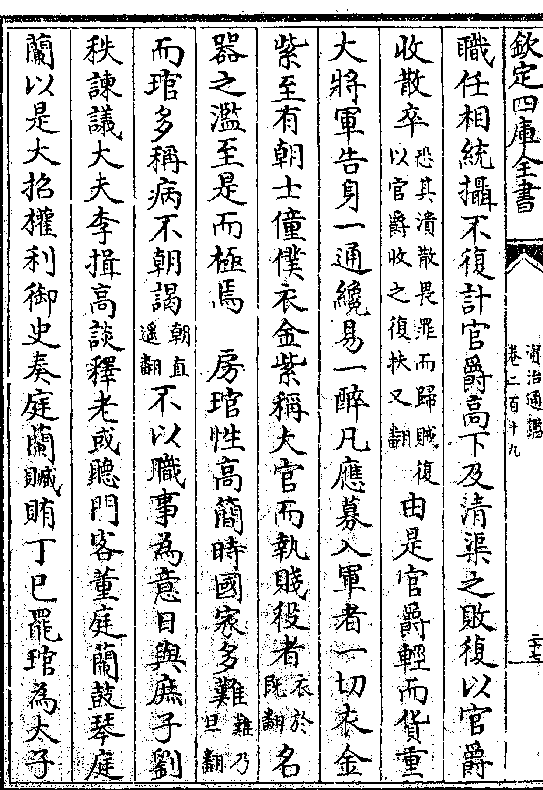 欽定四庫全書
資治通鑑
卷二百十九
職任相統攝不復計官爵高下及清渠之敗復以官爵
收散卒恐其潰散畏罪而歸賊復以官爵收之復扶又翻由是官爵輕而貨重
大將軍告身一通纔易一醉凡應募入軍者一切衣金
紫至有朝士僮僕衣金紫稱大官而執賤役者衣於既翻名
器之濫至是而極焉 房琯性高簡時國家多難難乃旦翻
而琯多稱病不朝謁朝直遥翻不以職事為意日與庶子劉
秩諫議大夫李揖高談釋老或聽門客董庭蘭鼓琴庭
蘭以是大招權利御史奏庭蘭贓賄丁巳罷琯為太子